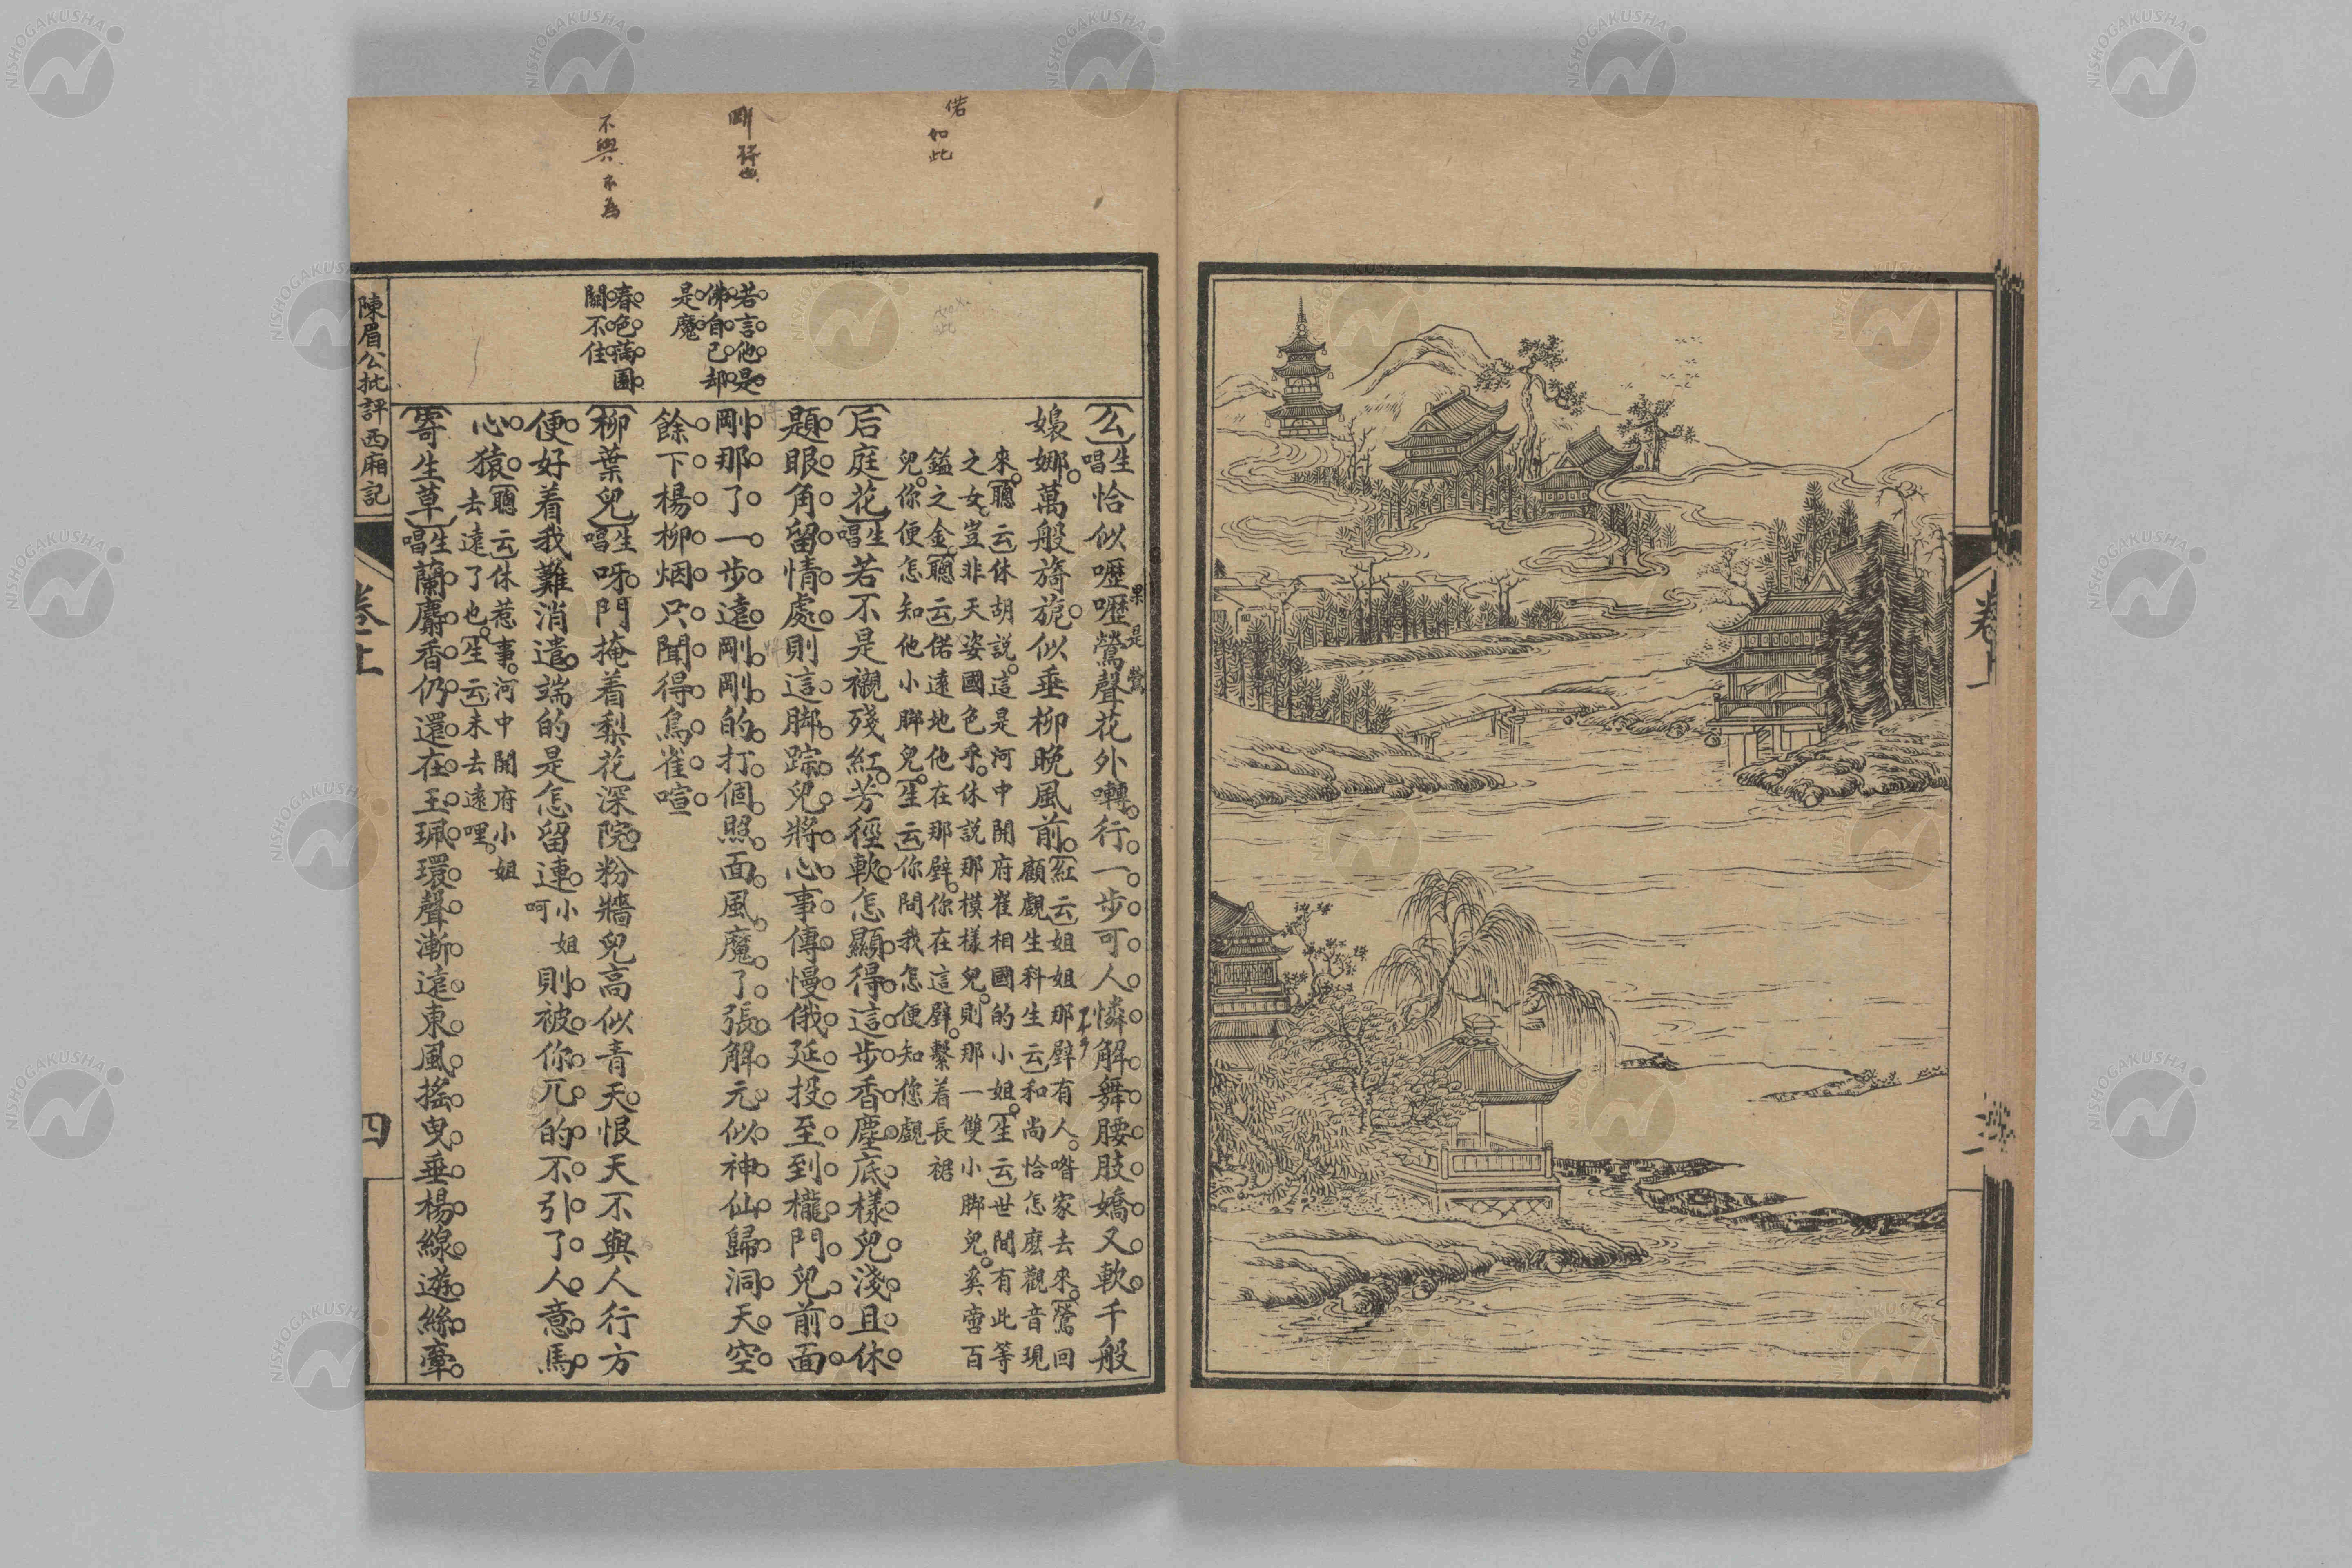 卷上
偌
如此
剛
將也
不與
不為
若言他是
佛自己却
是魔
春色滿園
關不住
【么】生唱恰似嚦嚦鶯聲花外囀行一步可人憐解舞腰肢嬌又軟千般
果是鶯
嬝娜萬般旖旎似垂柳晚風前【紅云】姐姐那壁有人喒家去來【鶯回
顧覷生科生云】和尚恰怎麼觀音現
來【聰云】休胡說這是河中開府崔相國的小姐【生云】世間有此等
之女豈非天姿國色乎休說那模樣兒則那一雙小脚兒奚啻百
鎰之金【聰云】偌遠地他在那壁你在這壁繫着長裙
兒你便怎知他小脚兒【生云】你問我怎便知您覷
【后庭花】生唱若不是襯殘紅芳徑軟怎顯得這步香塵底樣兒淺且休
題眼角留情處則這脚踪兒將心事傳慢俄延投至到櫳門兒前面
剛那了一步遠剛剛的打個照面風魔了張解元似神仙歸洞天空
餘下楊柳烟只聞得鳥雀喧
【柳葉兒】生唱呀門掩着梨花深院粉牆兒高似青天恨天不與人行方
便好着我難消遣端的是怎留連小姐呵則被你兀的不引了人意馬
心猿【聰云】休惹事河中開府小姐
去遠了也【生云】未去遠哩
【寄生草】生唱蘭麝香仍還在玉珮環聲漸遠東風搖曳垂楊線遊絲牽
陳眉公批評西廂記
卷上
四